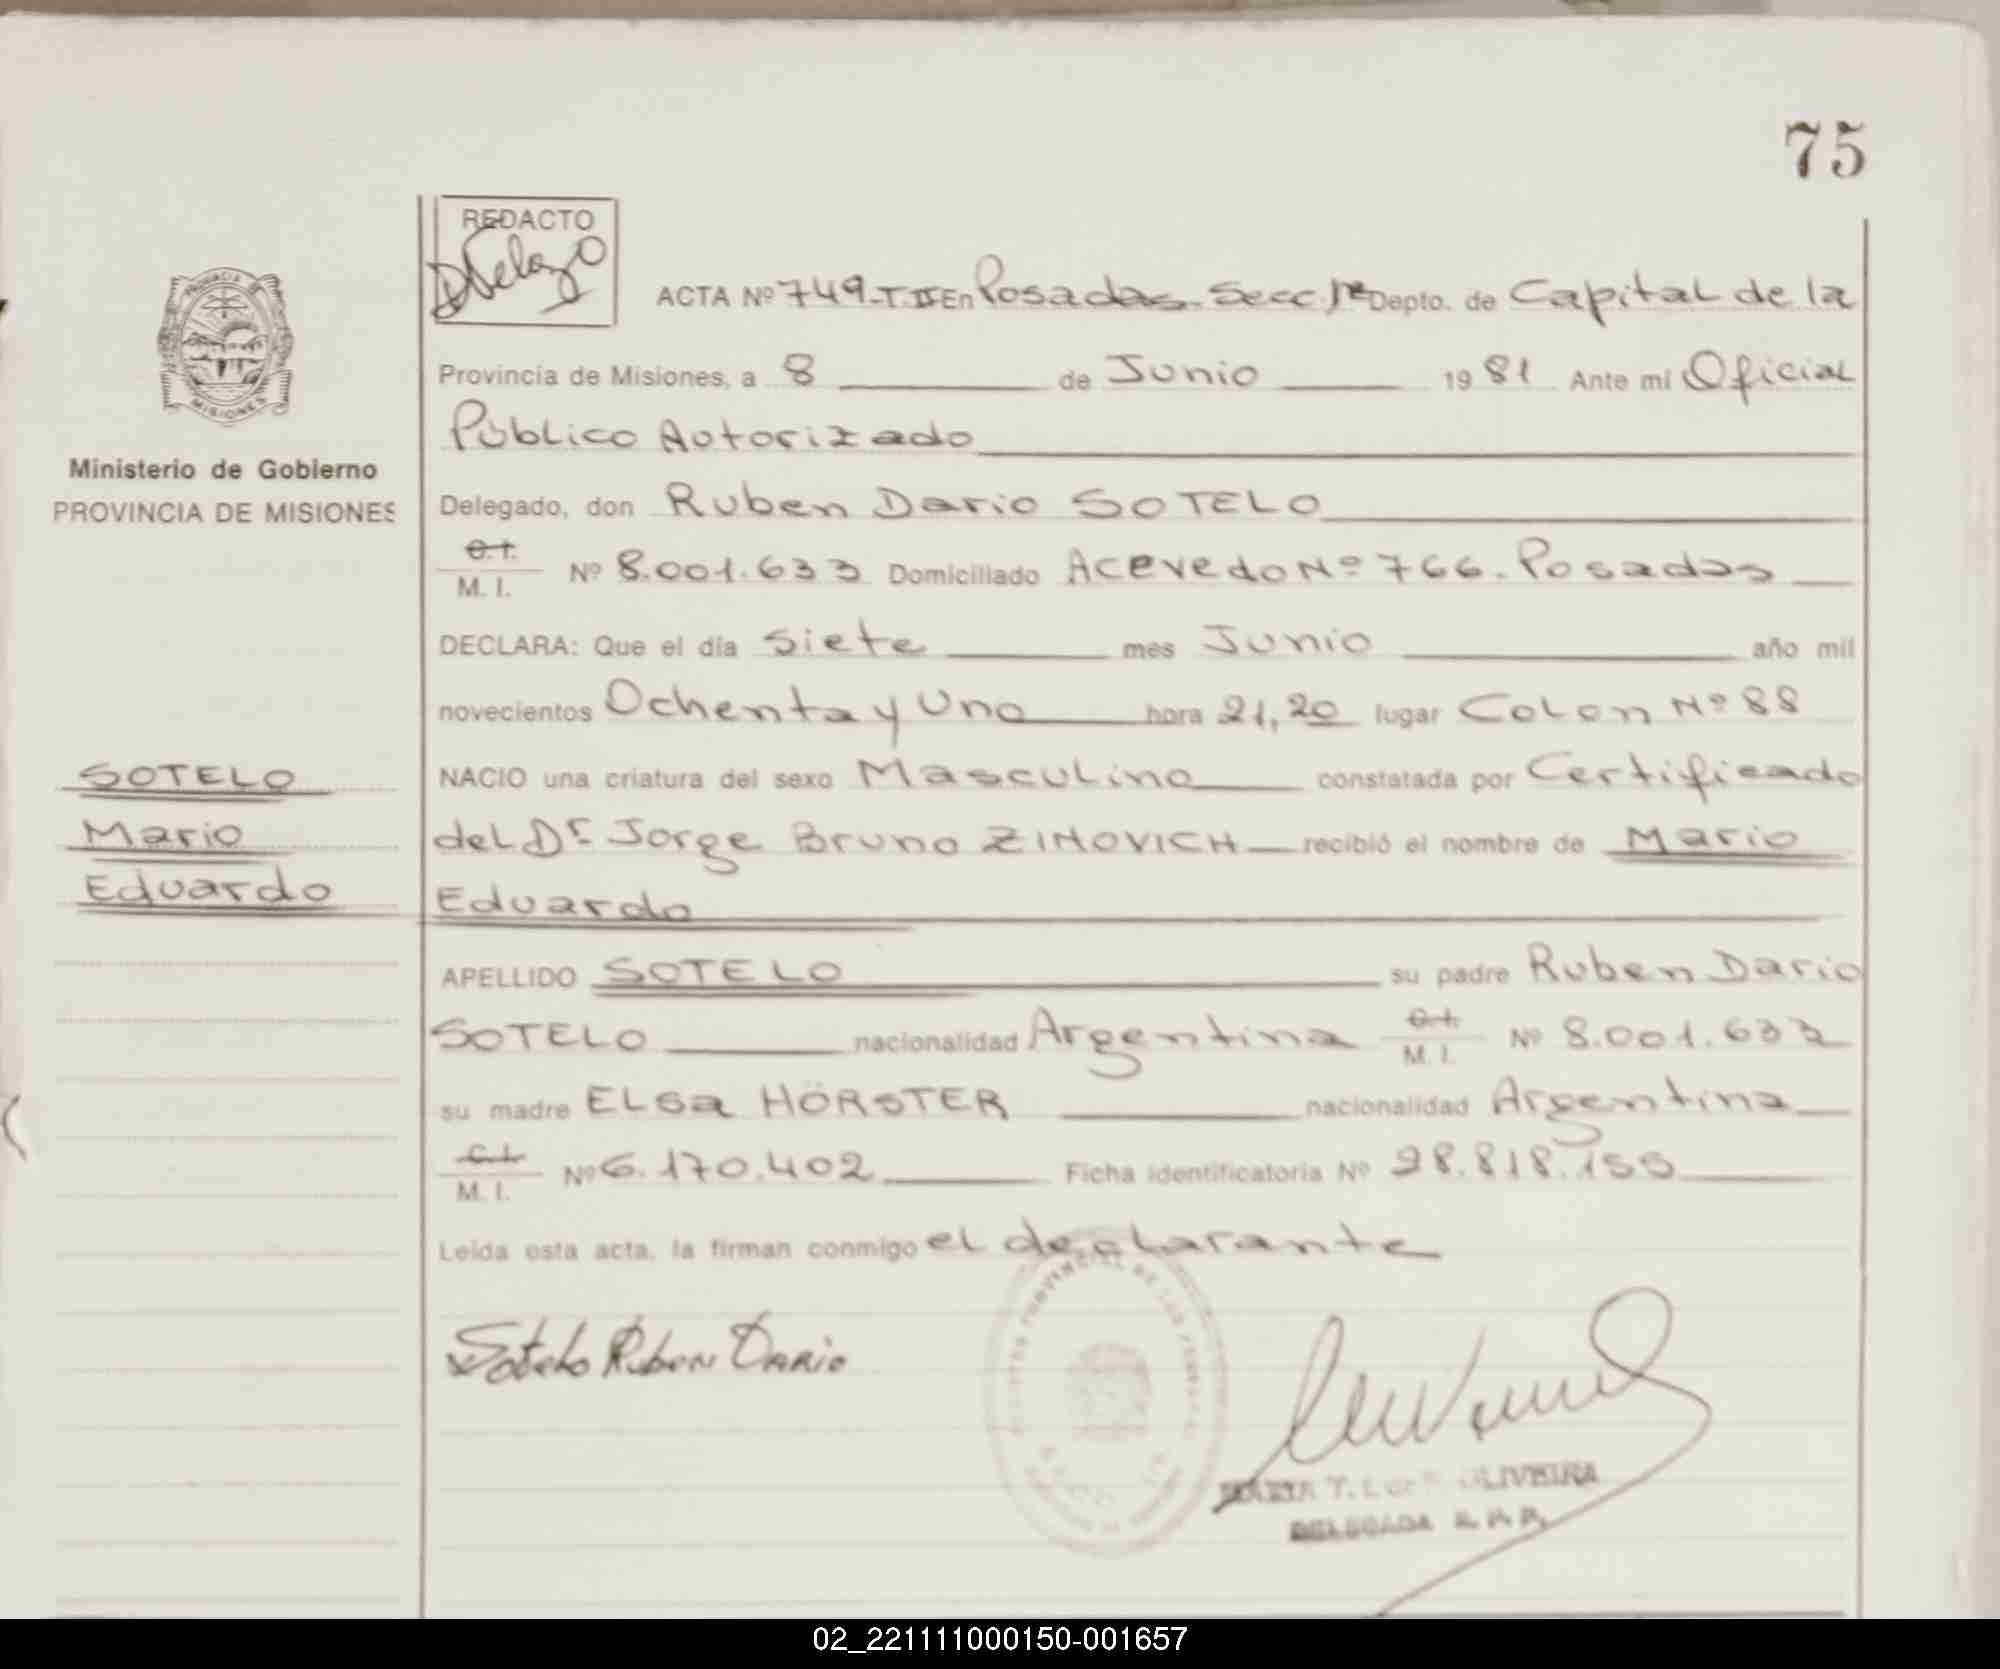 75
REDACTO
ACTA Nº 749-T.II En Posadas. Secc. 1ra Depto. de Capital de la
Provincia de Misiones, a 8 de Junio 1981 Ante mi Oficial
Público Autorizado
Delegado, don Ruben Dario SOTELO
C.I.
M. I. Nº 8.001.633 Domiciliado Acevedo Nº 766. Posadas
DECLARA: Que el día siete mes Junio año mil
novecientos Ochenta y Uno hora 21,20 lugar Colon Nº 88
NACIO una criatura del sexo Masculino constatada por Certificado
del Dr Jorge Bruno ZINOVICH recibió el nombre de Mario
Eduardo
APELLIDO SOTELO su padre Ruben Dario
SOTELO nacionalidad Argentina C.I.
M. I. Nº 8.001.633
su madre ELsa HÖRSTER nacionalidad Argentina
C.I.
M. I. Nº 6.170.402 Ficha identificatoria Nº 28.818.155
Leída esta acta, la firman conmigo el declarante
Sotelo Ruben Dario
MARIA T. OLIVEIRA
DELEGADA R.P.P.
PROVINCIA DE
MISIONES
Ministerio de Gobierno
PROVINCIA DE MISIONES
SOTELO
Mario
Eduardo
02_221111000150-001657